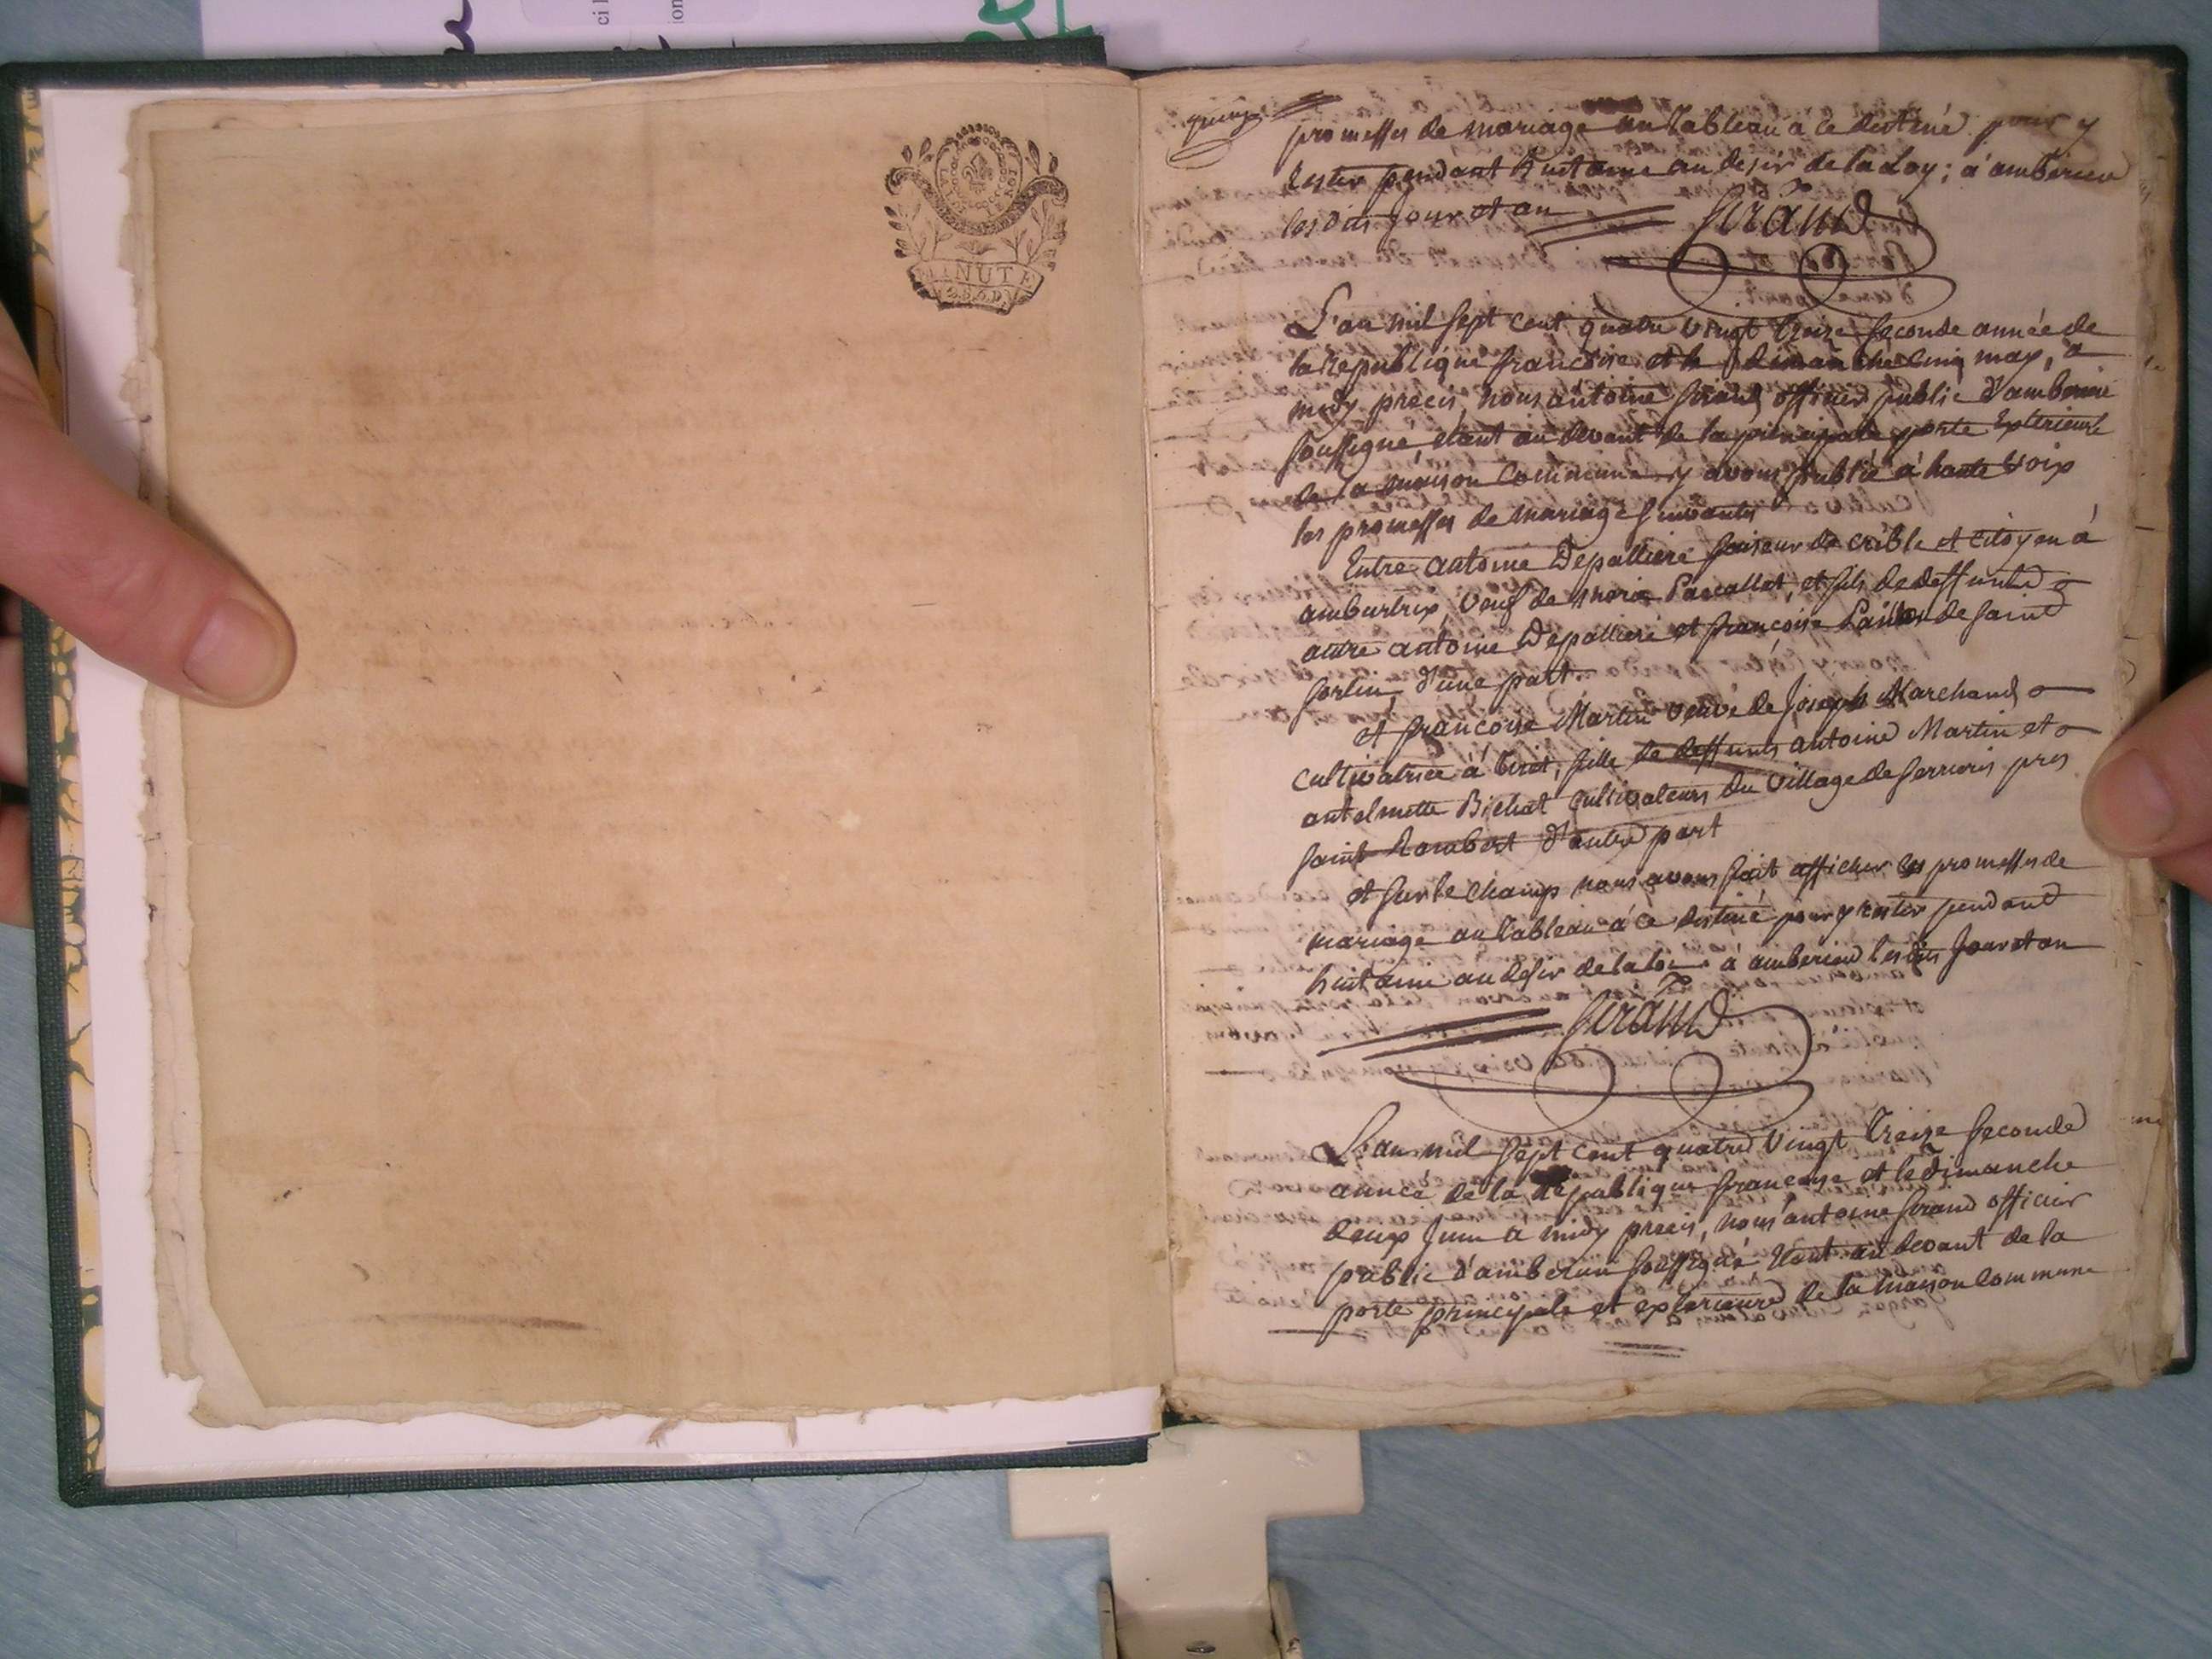 MINUTE
promesses de mariage au tableau a ce destiné pour y
rester pendant huitaine au desir de la Loy; a amberieu
les dits jour et an
Girand
L'an mil sept cent quatre vingt treize seconde année de
la Republique francoise et le dimanche cinq may, a
midy precis, nous antoine Girand officier public d'amberieu
soussigné, etant au devant de la principale porte exterieure
de la maison Commune y avons publié a haute voix
les promesses de mariage suivantes
Entre antoine Depalliere faiseur de crible et citoyen à
ambutrix, veuf de marie et fils de deffunts
autre antoine Depalliere et francoise de saint
sorlin, d'une part.
et francoise Martin veuve de Joseph Marchand
cultivatrice a tiret, fille de deffunts antoine Martin et
antelmette Bichat cultivateurs du village de serrieres pres
saint Rambert d'autre part
et sur le champ nous avons fait afficher les promesses de
mariage au tableau a ce destiné pour y rester pendant
huitaine au desir de la loi a amberieu les dits jour et an
Girand
L'an mil sept cent quatre vingt treize seconde
année de la Republique francoise et le dimanche
deux Juin a midy precis, nous antoine Girand officier
public d'amberieu soussigné, etant au devant de la
porte principale et exterieure de la maison Commune